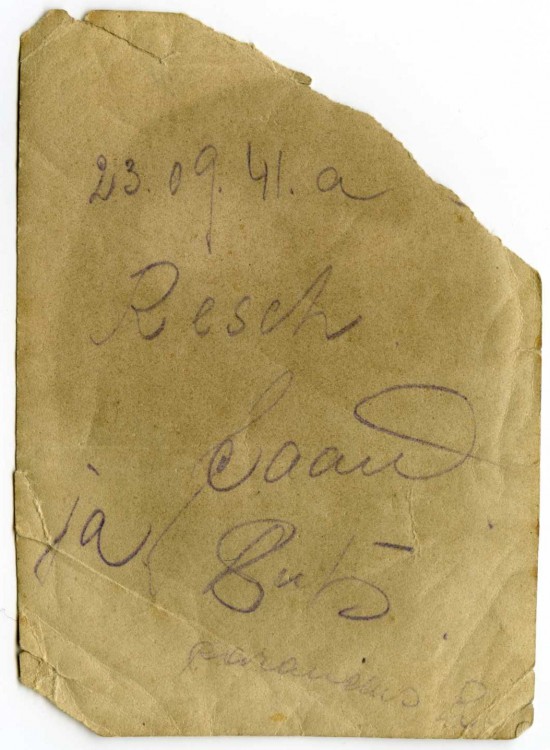 23.09.41. a
Resch
Laand
ja Buts